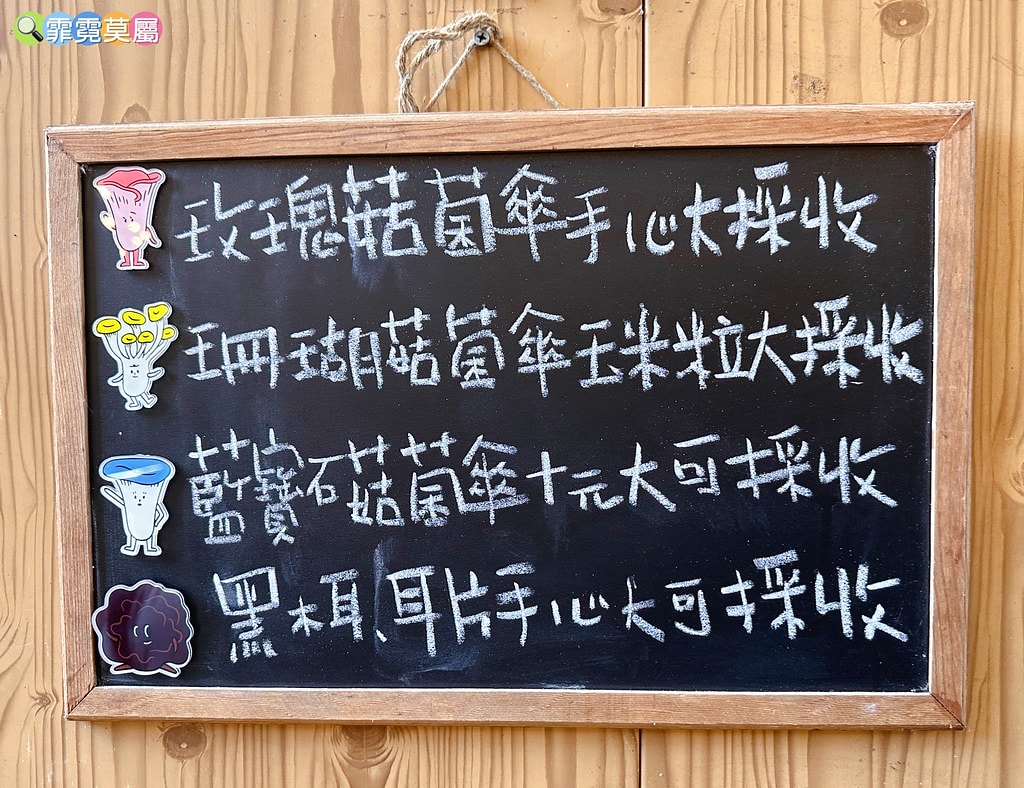 霏霓莫屬
玫瑰菇菌傘手心大採收
珊瑚菇菌傘玉米粒大採收
藍寶石菇菌傘十元大可採收
黑木耳、耳片手心大可採收